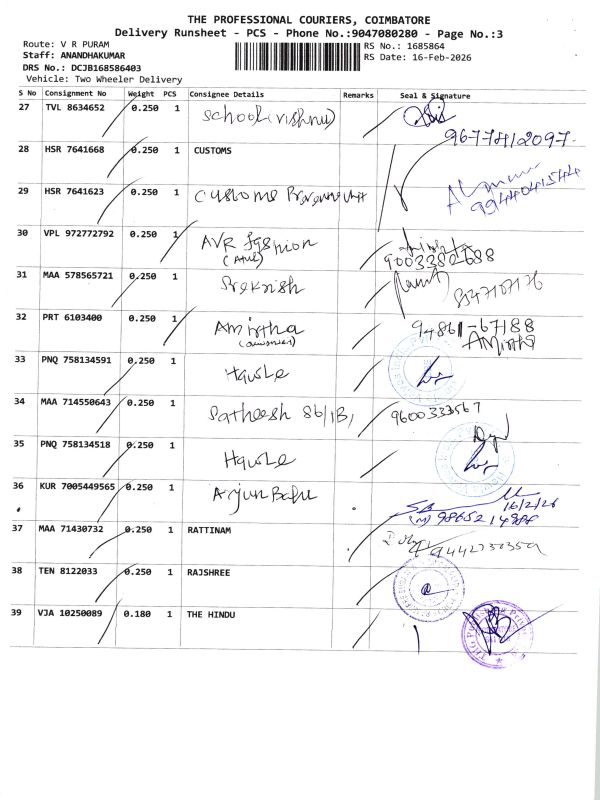 THE PROFESSIONAL COURIERS, COIMBATORE
Delivery Runsheet - PCS - Phone No.:9047080280 - Page No.:3
Route: V R PURAM
Staff: ANANDHAKUMAR
DRS No.: DCJB168586403
Vehicle: Two Wheeler Delivery
RS No.: 1685864
RS Date: 16-Feb-2026
S No Consignment No Weight PCS Consignee Details Remarks Seal & Signature
27 TVL 8634652 0.250 1 School (vishnu) 9677412097
28 HSR 7641668 0.250 1 CUSTOMS
29 HSR 7641623 0.250 1 Customs unit
30 VPL 972772792 0.250 1 AVR fashion 9003382688
31 MAA 578565721 0.250 1
32 PRT 6103400 0.250 1 Amirtha 94861-67188
Amirtha
33 PNQ 758134591 0.250 1
34 MAA 714550643 0.250 1 Satheesh 86/1B, 9600333567
35 PNQ 758134518 0.250 1
36 KUR 7005449565 0.250 1 Arjun Babu 16/2/26
37 MAA 71430732 0.250 1 RATTINAM
38 TEN 8122033 0.250 1 RAJSHREE
39 VJA 10250089 0.180 1 THE HINDU